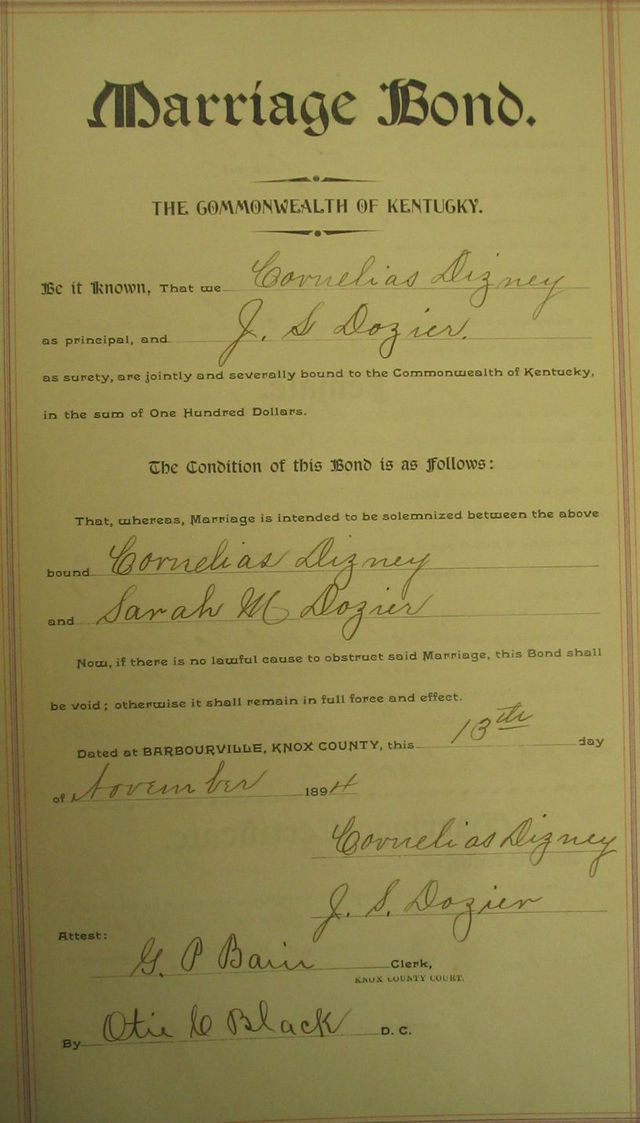 Marriage Bond.
THE COMMONWEALTH OF KENTUCKY.
Be it Known, That we Cornelias Dizney
as principal, and J. S Dozier.
as surety, are jointly and severally bound to the Commonwealth of Kentucky,
in the sum of One Hundred Dollars.
The Condition of this Bond is as Follows:
That, whereas, Marriage is intended to be solemnized between the above
bound Cornelias Dizney
and Sarah M Dozier
Now, if there is no lawful cause to obstruct said Marriage, this Bond shall
be void; otherwise it shall remain in full force and effect.
Dated at BARBOURVILLE, KNOX COUNTY, this 13th day
of November 1894
Cornelias Dizney
J. S. Dozier
Attest:
G. P Bain Clerk,
KNOX COUNTY COURT.
By Otie C Black D. C.